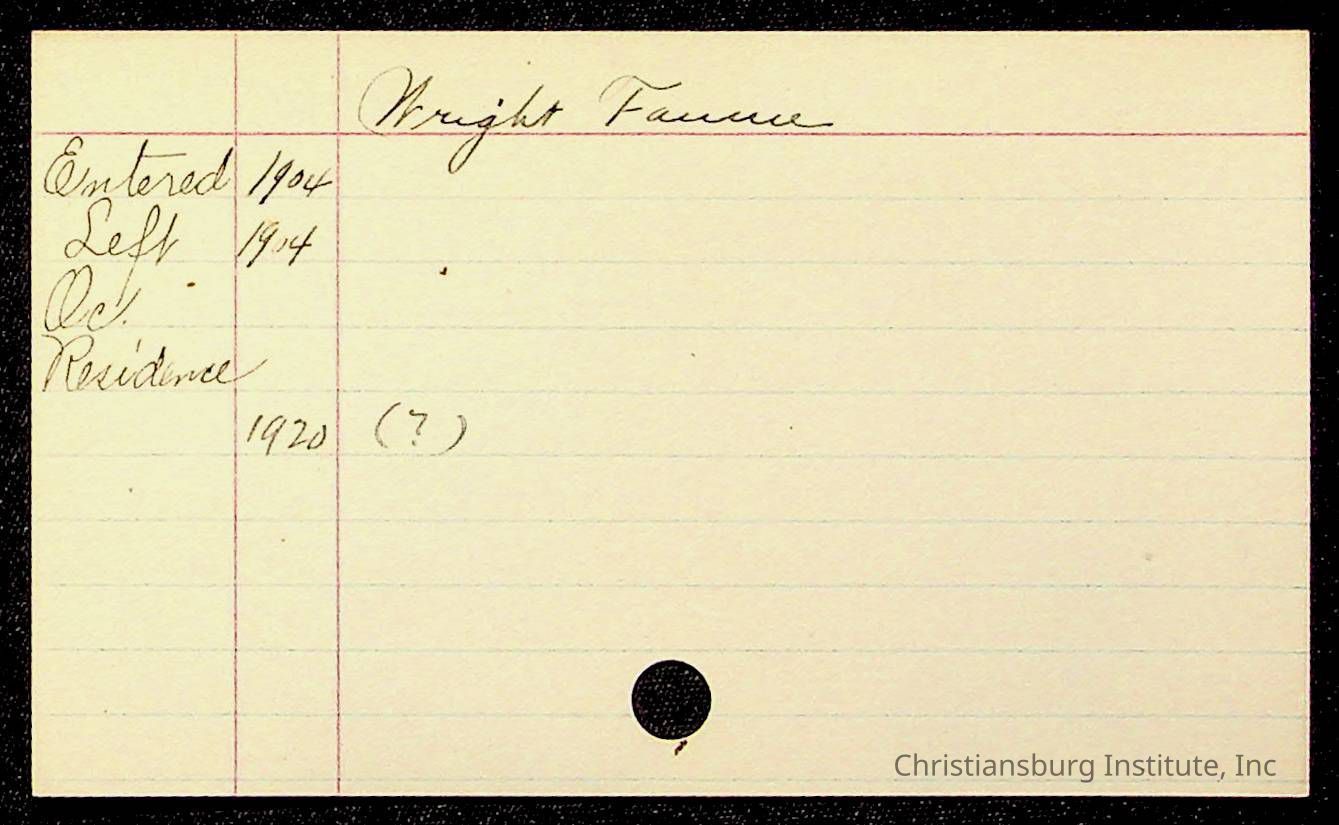 Wright Fannie
Entered 1904
Left 1904
Oc.
Residence
1920 (?)
Christiansburg Institute, Inc